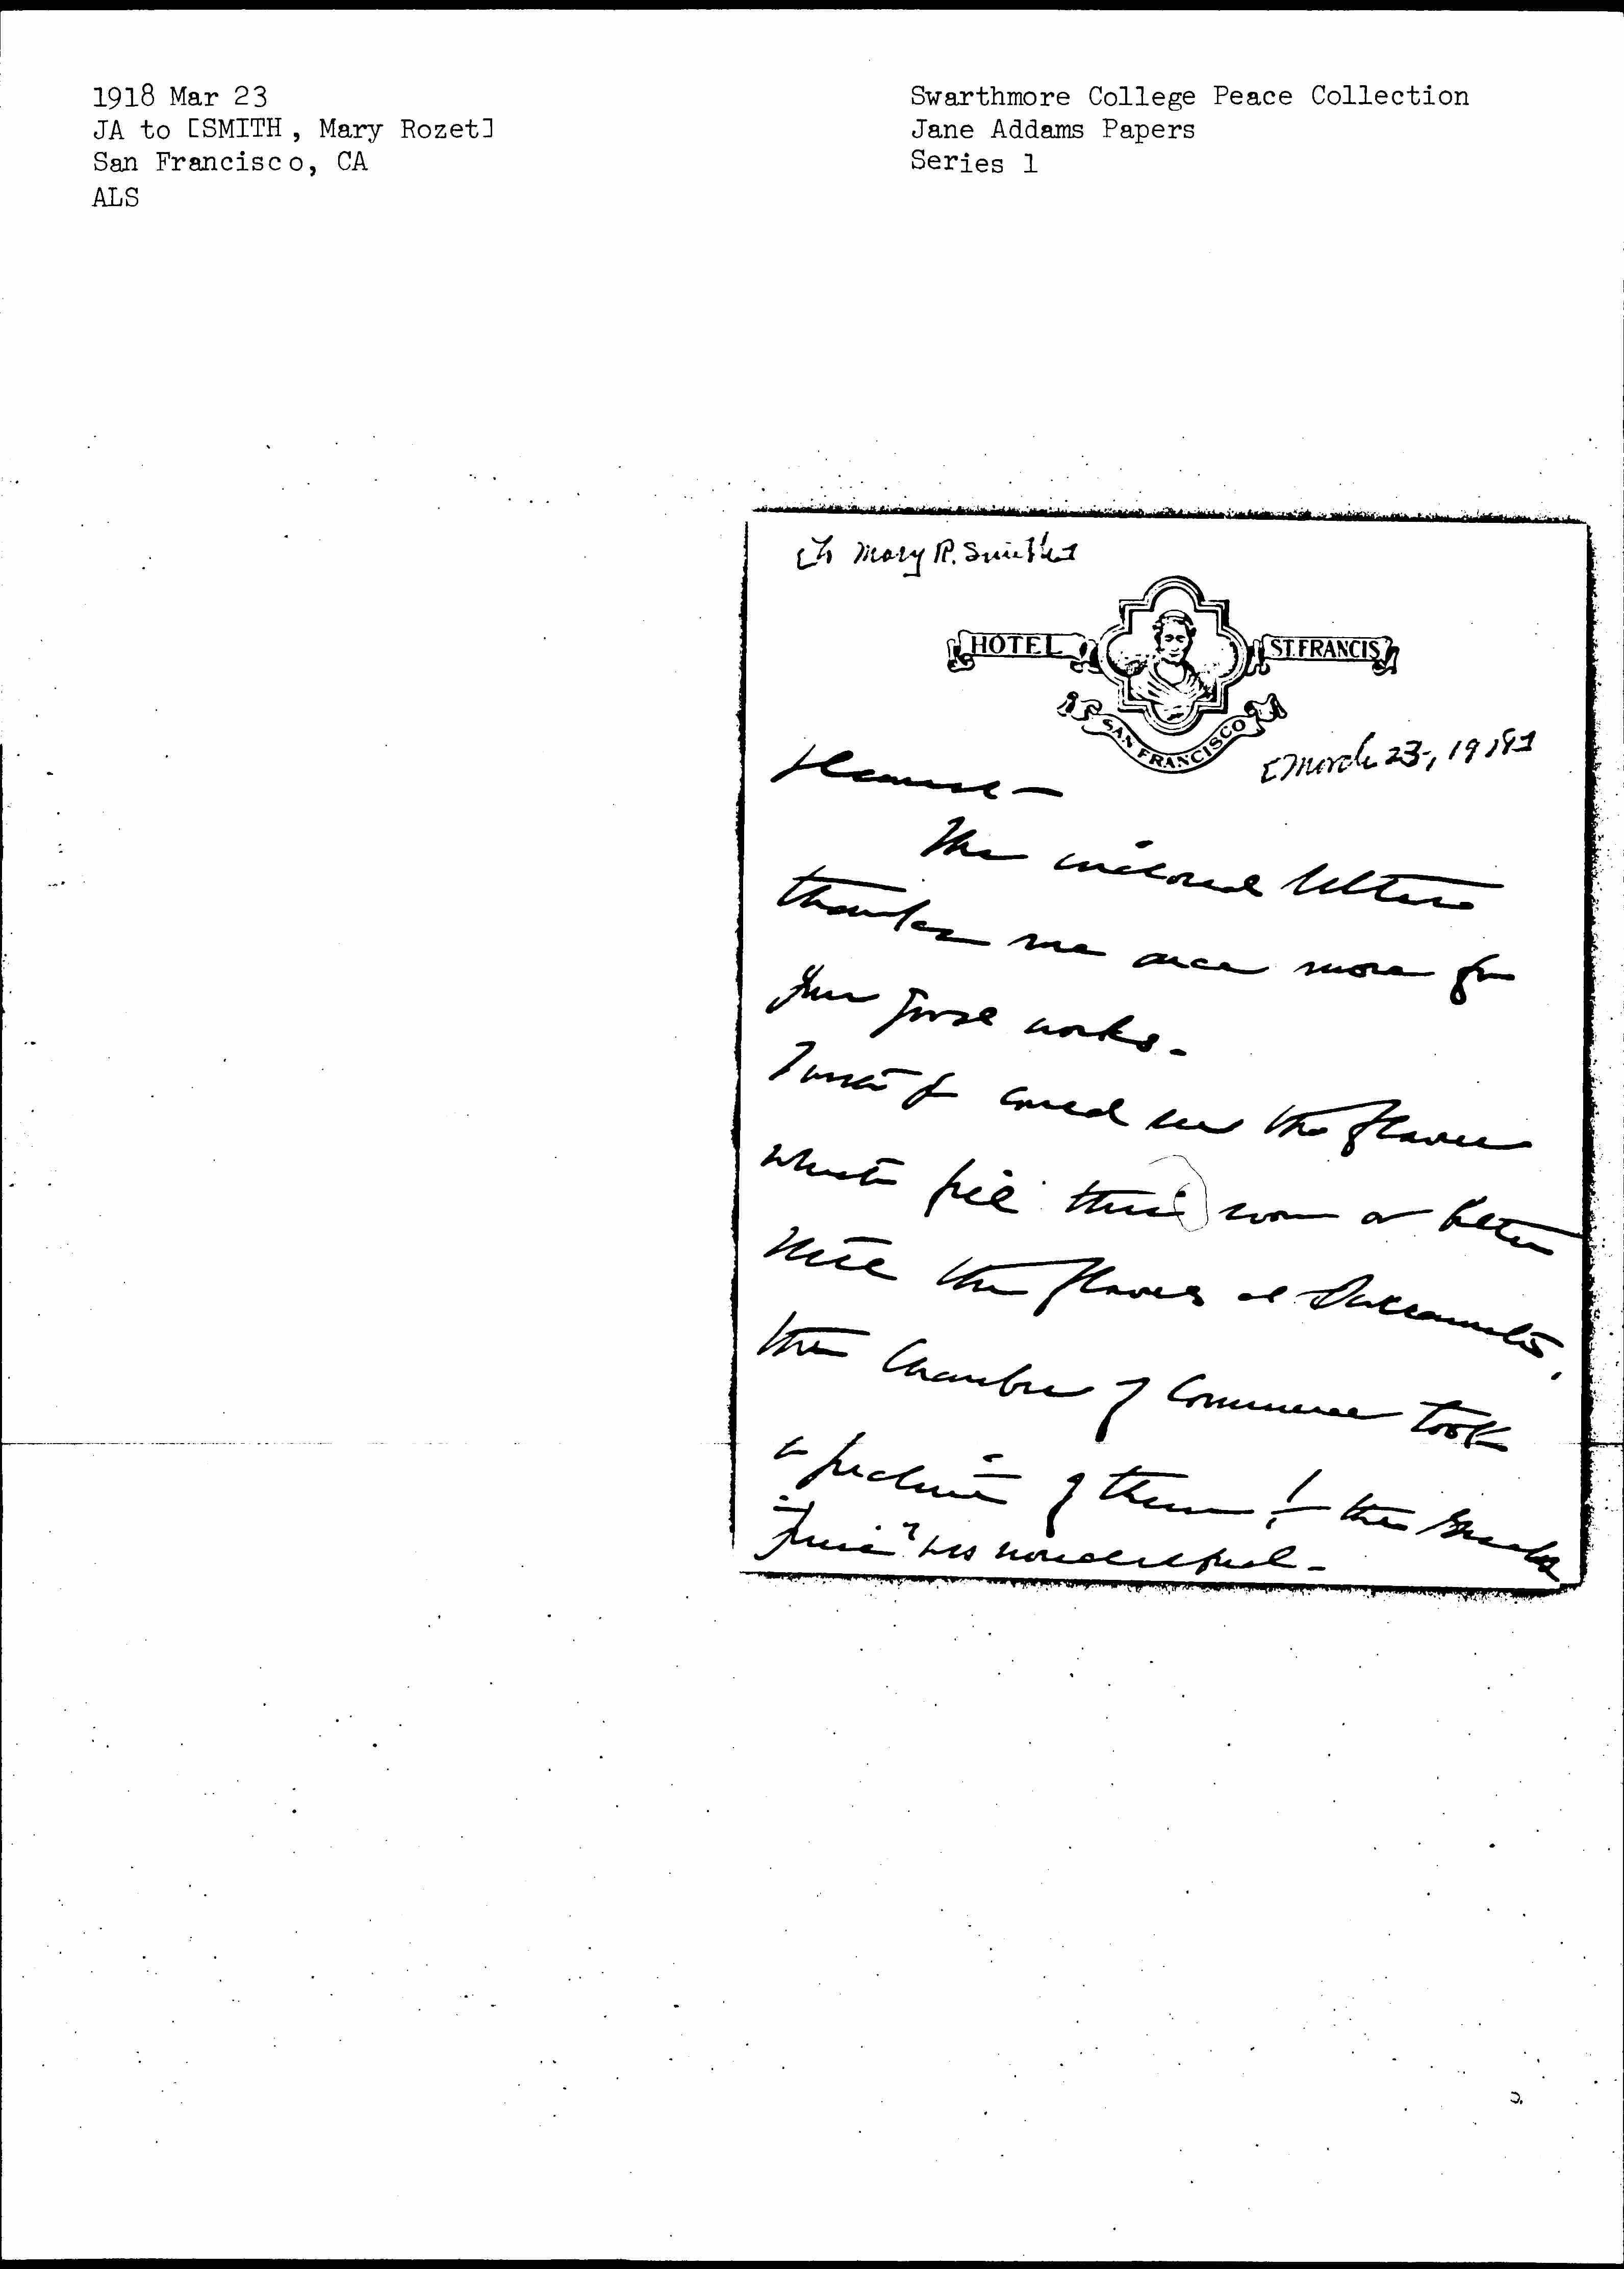 1918 Mar 23
JA to [SMITH, Mary Rozet]
San Francisco, CA
ALS
Swarthmore College Peace Collection
Jane Addams Papers
Series 1
[To Mary R. Smith]
HOTEL ST. FRANCIS
SAN FRANCISCO
[March 23, 1918]
Dearest —
The inclosed letters
thanks me once more for
your good works.
I wish you could see the flowers
which fill this room or better
still the flowers at Sacramento,
the Chamber of Commerce took
a picture of them! — the
was wonderful —